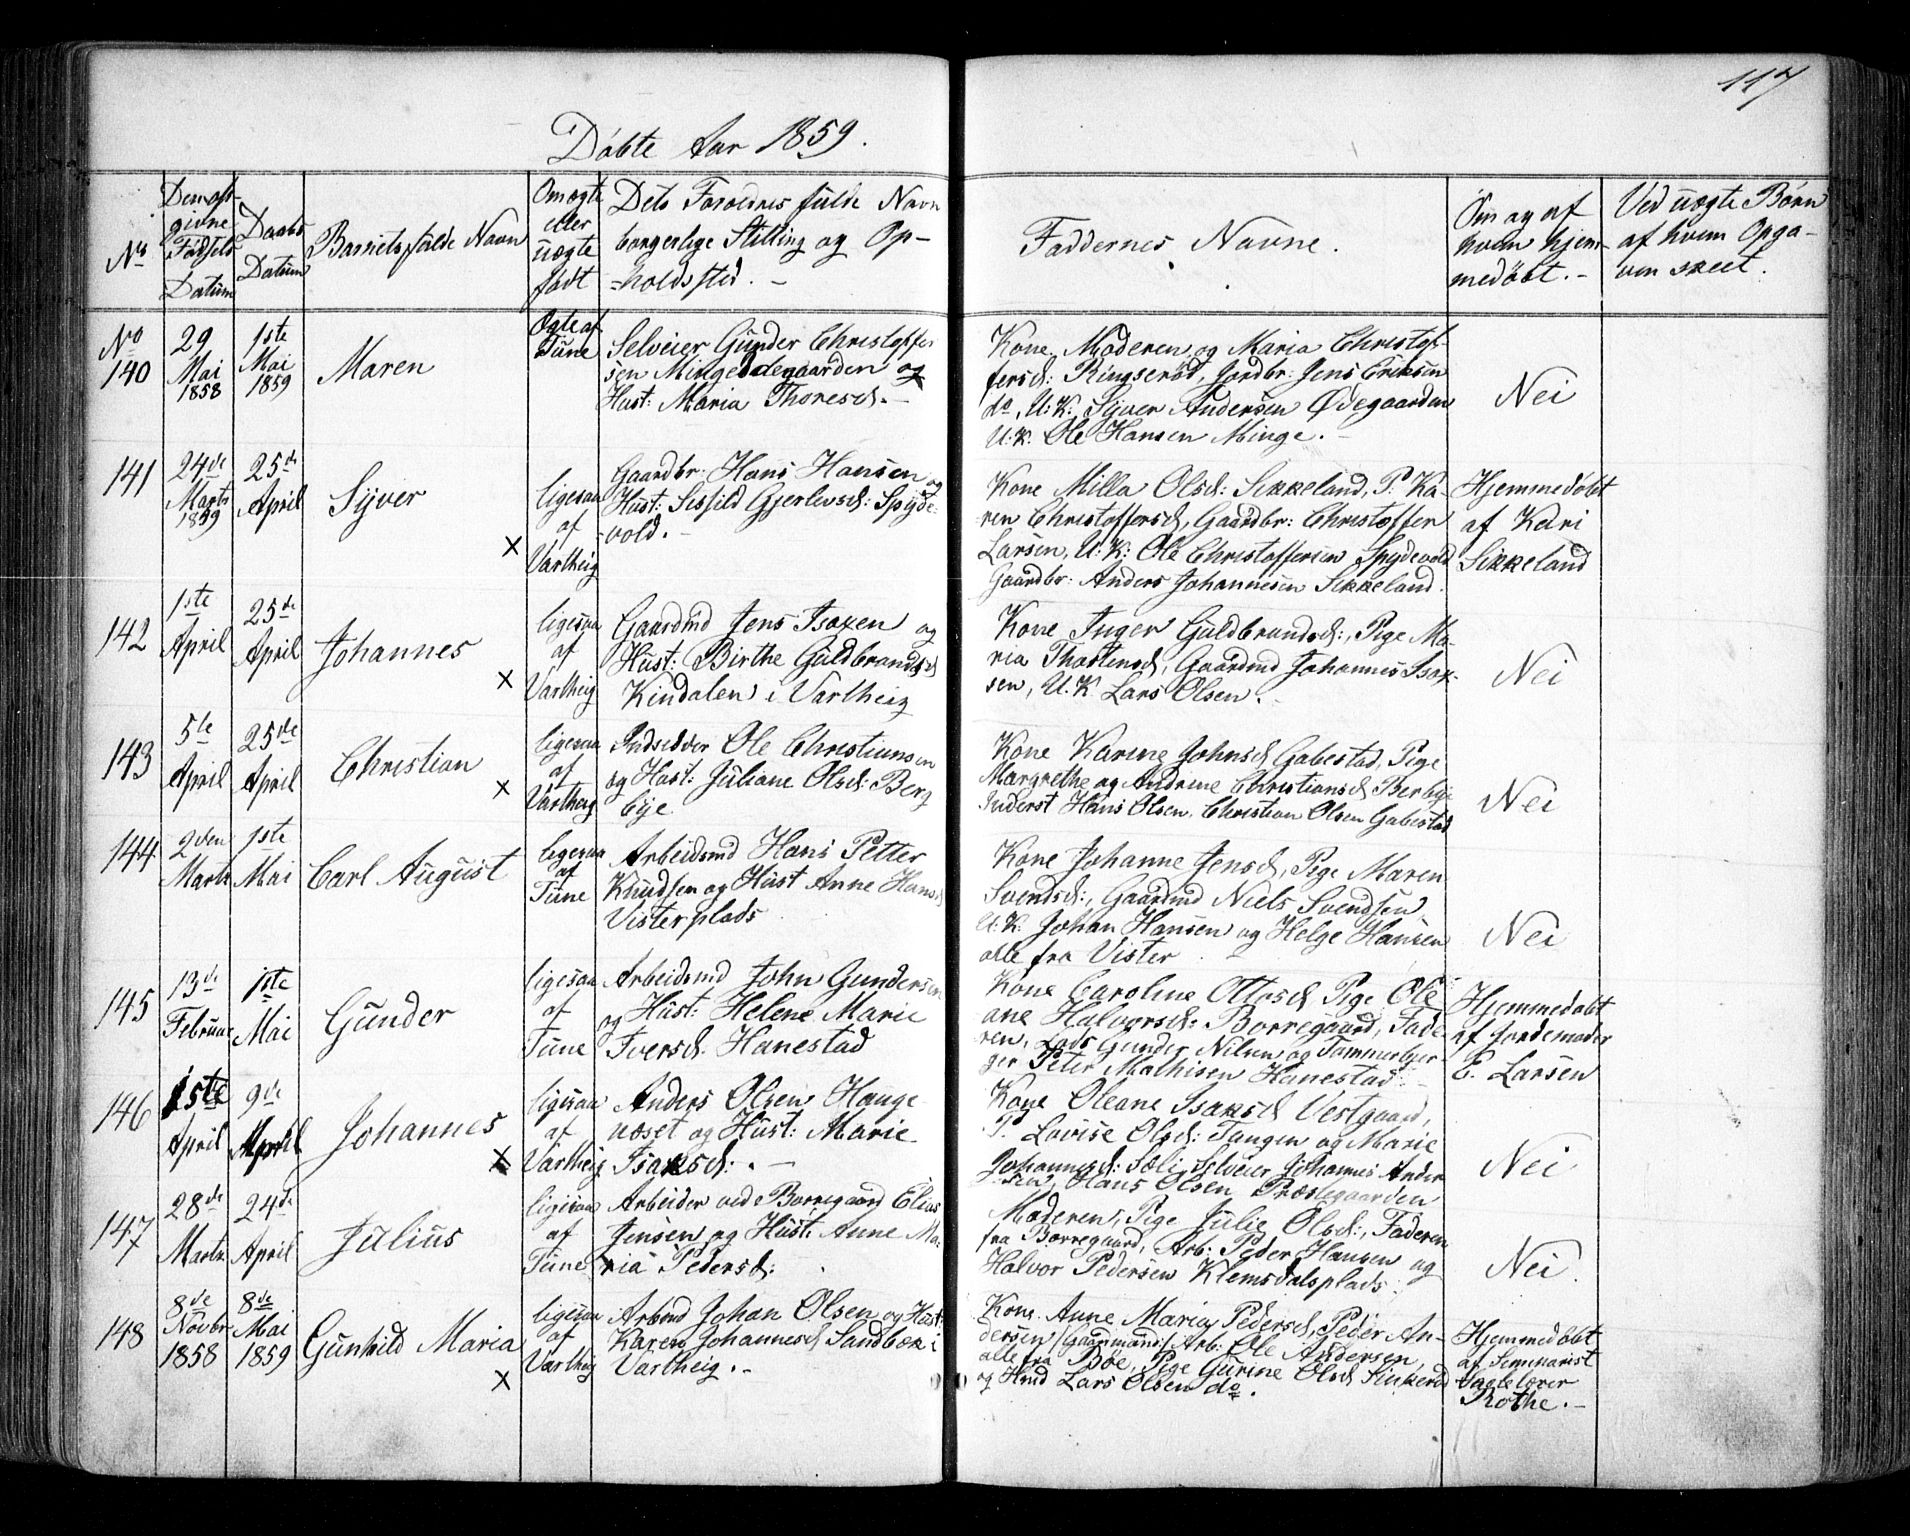 117
Døbte Aar 1859.
No
Den opgivne Fødsels Datum
Daabs Datum
Barnets fulde Navn
Om ægte eller uægte født
Dets Foreldres fulde Navn
borgerlige Stilling og Op-
holdssted. -
Faddernes Navne.
Om og af
hvem hjem-
medøbt. -
Ved uægte Børn
af hvem Opga-
ven skeet.
No 140
29 Mai 1858
1ste Mai 1859
Maren
Ægte af Tune
Selveier Gunder Christoffer
sen Minge Ødegaarden og
Hust: Maria Thoresd. -
Kone, Moderen og Maria Christof-
fersd: Ringserød, Jordbr: Jens Eriksen
do, U:K: Syver Andersen Ødegaarden
U.K. Ole Hansen Minge. -
Nei
141
24de Marts 1859
25de April
Syver
ligesaa af Vartheig
Gaardbr: Hans Hansen og
Hust: Sissild Gjerlevsd: Spyde-
vold. -
Kone Milla Olsd: Sikkeland, P. Ka-
ren Christoffersd, Gaardbr: Christoffer
Larsen, U:K: Ole Christoffersen Spydevold
Gaardbr: Anders Johannesen Sikkeland.
Hjemmedøbt
af Kari
Sikkeland
142
1ste April
25de April
Johannes
ligesaa af Vartheig
Gaardmd Jens Isaxen og
Hust: Birthe Guldbrandsd
Kindalen i Vartheig
Kone Inger Guldbrandsd:, Pige Ma-
ria Thostensd, Gaardmd Johannes Isax-
sen, U.K. Lars Olsen. -
Nei
143
5te April
25de April
Christian
ligesaa af Vartheig
Indsidder Ole Christiansen
og Hust: Juliane Olsd: Berg
bye
Kone Karine Johnsd Gabestad, Pige
Margrethe og Andrine Christiansd Berbye
Inderst Hans Olsen, Christian Olsen Gabestad
Nei
144
2den Marts
1ste Mai
Carl August
ligesaa af Tune
Arbeidsmd Hans Petter
Knudsen og Hust Anne Hansd
Visterplads
Kone Johanne Jensd, Pige Maren
Svendsd:, Gaardmd Niels Svendsen
U.K. Johan Hansen og Helge Hansen
alle fra Vister
Nei
145
13de Februar
1ste Mai
Gunder
ligesaa af Tune
Arbeidsmd John Gundersen
og Hust: Helene Marie
Iversd. Hanestad
Kone Caroline Ottosd Pige Ole
ane Halvorsd: Borregaard, Fade-
ren, Lods Gunder Nilsen og Tømmerbjer-
ger Peter Mathisen Hanestad
Hjemmedøbt
af Jordemoder
E. Larsen
146
1ste April
9de April
Johannes
ligesaa af Vartheig
Anders Olsen Hauge
næset og Hust: Marie
Isaksd: . -
Kone Oleane Isaksd Vestgaard,
P. Lovise Olsd: Tangen og Marie
Johannesd: Sæli Selveier Johannes Ander
sen, Hans Olsen Præstegaarden
Nei
147
28de Marts
24de April
Julius
ligesaa af Tune
Arbeider ved Borregaard Elias
Jensen og Hust: Anne Ma-
ria Pedersd:
Moderen, Pige Julie Olsd:, Faderen
fra Borregaard, Arb: Peder Hansen og
Halvor Pedersen Klemsdalsplads
Nei.
148
8de Novbr 1858
8de Mai 1859
Gunhild Maria
ligesaa af Vartheig
Arbmd Johan Olsen og Hust:
Karen Johannesd Sandbæk i
Vartheig. -
Kone Anne Maria Pedersd, Peder An-
dersen /Gaardmand/ Arb: Ole Andersen,
alle fra Bøe, Pige Gurine Olsd
og Hmd Lars Olsen do.
Hjemmedøbt
af Seminarist
Rothe. -